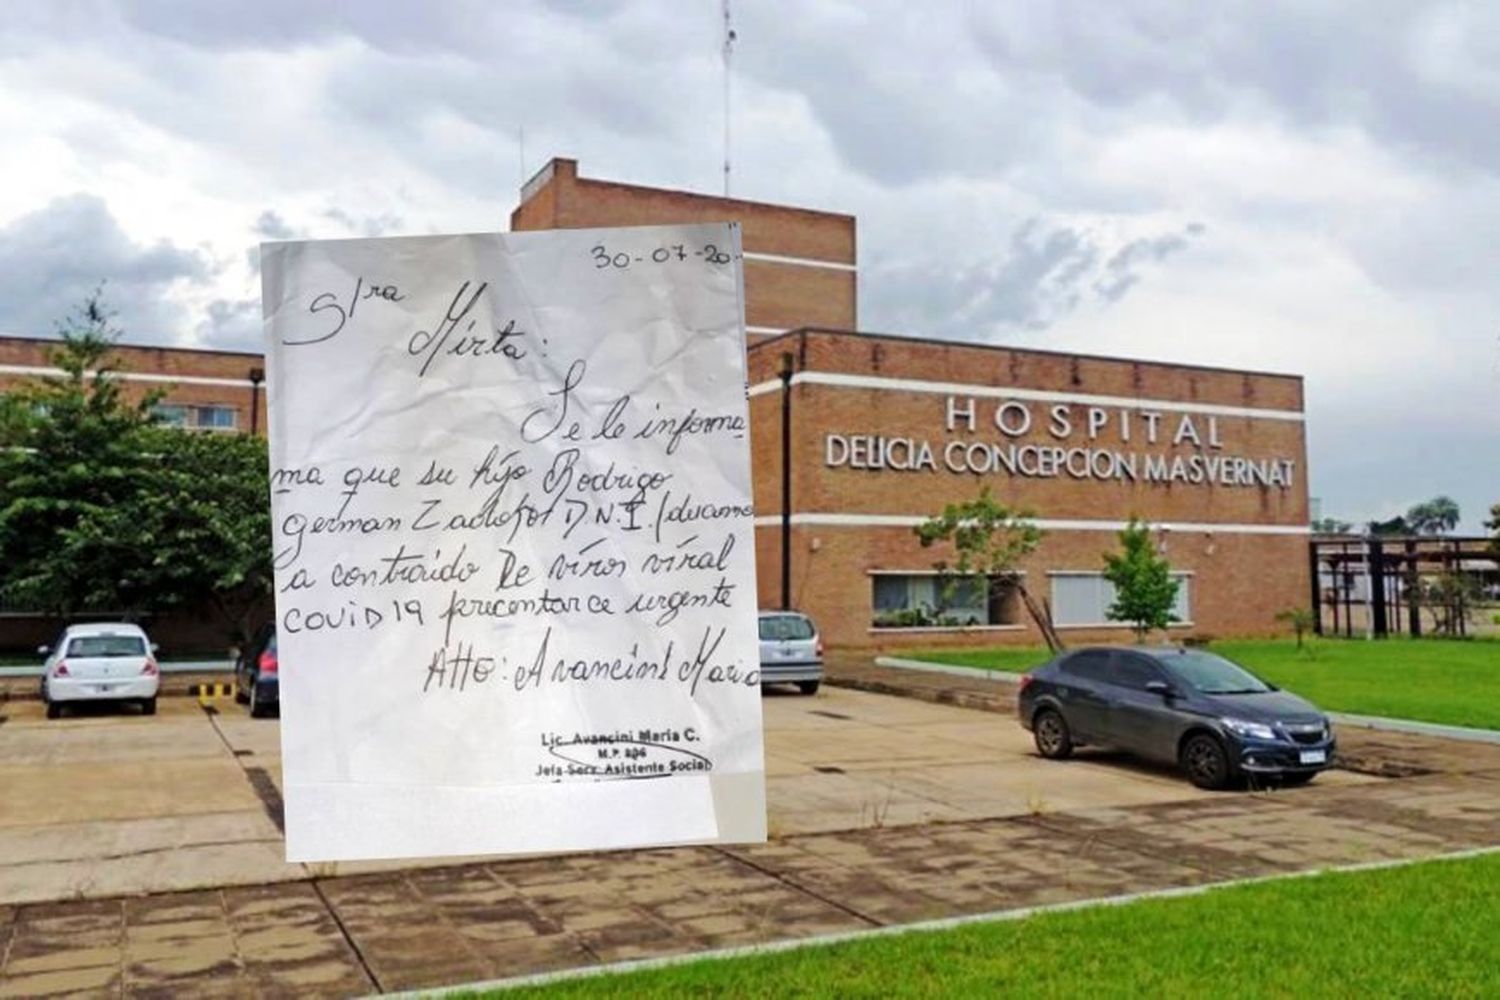 30-07-20-
S/ra
Mirta:
Se le informa
ma que su hijo Rodrigo
german D.N.I.
a contraido De viros viral
COViD19 precentarce urgente
Atto: Avancini Maria
Lic. Avancini Maria C.
M.P.
Jefa Serv. Asistente Social
HOSPITAL
DELICIA CONCEPCION MASVERNAT